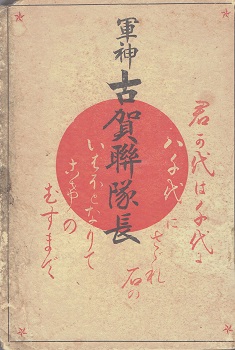 軍神 古賀聯隊長
君可代は千代に
八千代に
さゞれ
石の
いはほとなりて
こけの
むすまで